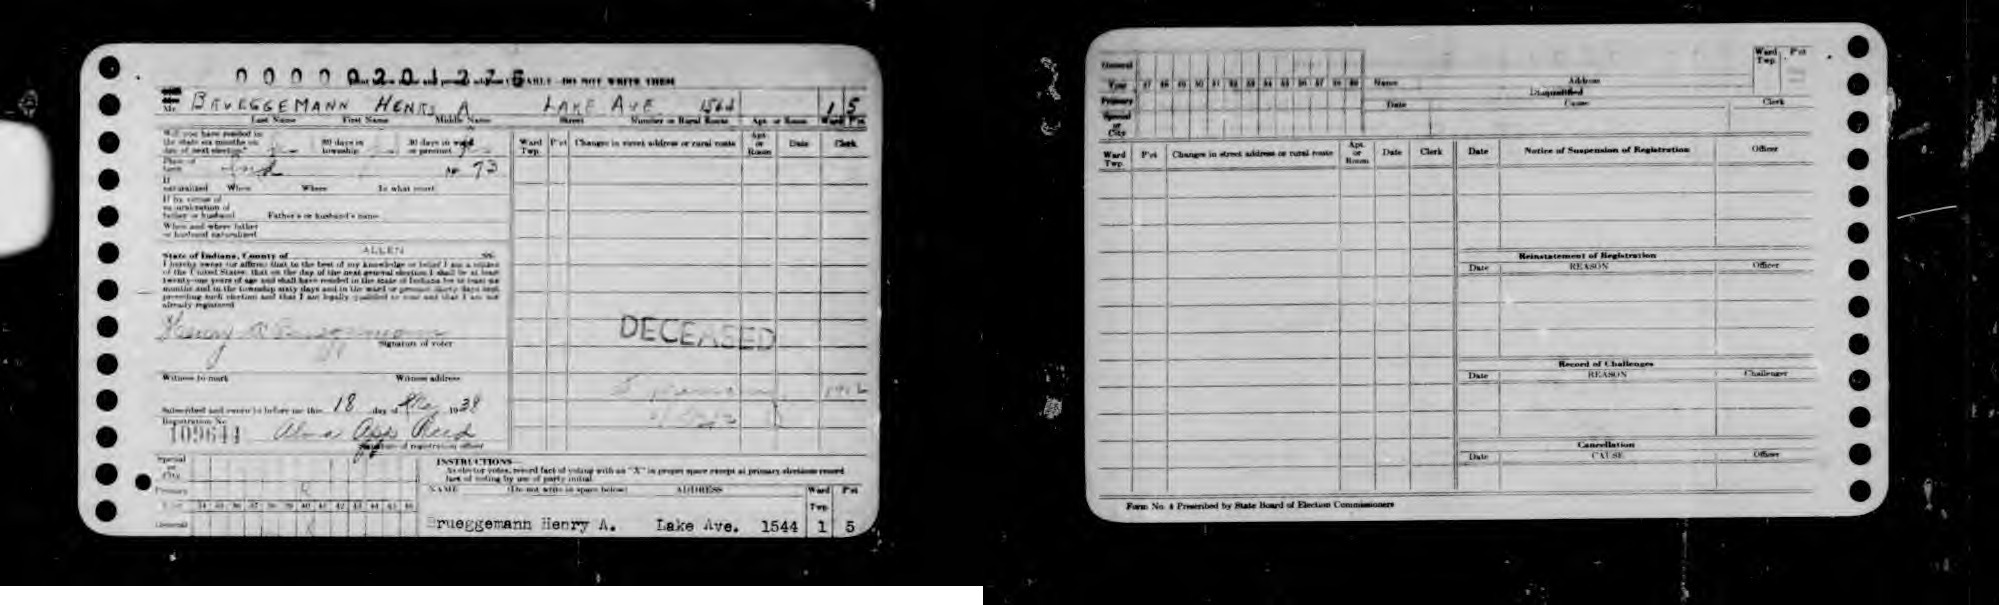 0 0 0 0 0 2 0 1 2 7 5
DO NOT WRITE THEM
Mr. BRUEGGEMANN HENRY A LAKE AVE 1544 1 5
Last Name First Name Middle Name Street Number or Rural Route Apt. or Room Ward P'ct
Will you have resided in
the state six months on
day of next election? 60 days in township 30 days in ward or precinct
Place of birth Ind 73
If naturalized When Where In what court
If by virtue of
naturalization of
father or husband Father's or husband's name
When and where father
or husband naturalized
State of Indiana, County of ALLEN SS:
I hereby swear (or affirm) that to the best of my knowledge or belief I am a citizen
of the United States; that on the day of the next general election I shall be at least
twenty-one years of age and shall have resided in the state of Indiana for at least six
months and in the township sixty days and in the ward or precinct thirty days next
preceding such election and that I am legally qualified to vote and that I am not
already registered.
Henry A Brueggemann
Signature of voter
Witness to mark Witness address
Subscribed and sworn to before me this 18 day of 1938
Registration No.
109644 Alma App Reed
Signature of registration officer
Ward Twp. P'ct Changes in street address or rural route Apt. or Room Date Clerk
DECEASED
Special or City
Primary R
Year 34 35 36 37 38 39 40 41 42 43 44 45 46
General X
INSTRUCTIONS—
As elector votes, record fact of voting with an "X" in proper space except at primary elections record
fact of voting by use of party initial
NAME (Do not write in space below) ADDRESS Ward Twp. P'ct
Brueggemann Henry A. Lake Ave. 1544 1 5
General
Year 47 48 49 50 51 52 53 54 55 56 57 58 59 Name Address Ward Twp. P'ct
Primary
Special or City
Disqualified
Date Cause Clerk
Ward Twp. P'ct Changes in street address or rural route Apt. or Room Date Clerk
Date Notice of Suspension of Registration Officer
Reinstatement of Registration
Date REASON Officer
Record of Challenges
Date REASON Challenger
Cancellation
Date CAUSE Officer
Form No. 4 Prescribed by State Board of Election Commissioners